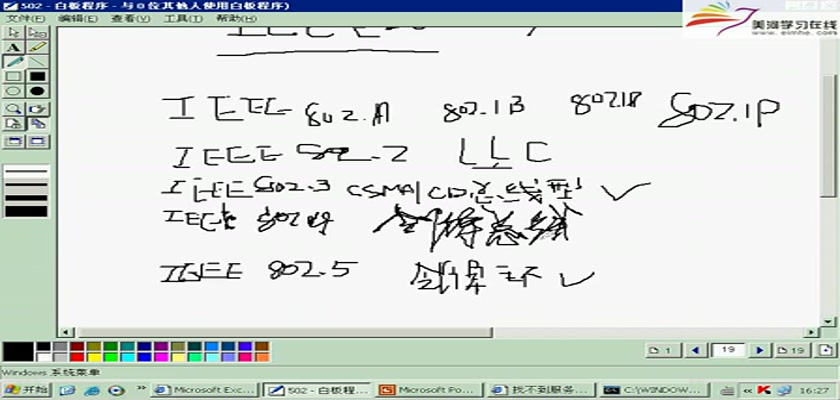 502 - 白板程序 - 与 0 位其他人使用白板程序)
文件(F) 编辑(E) 查看(V) 工具(T) 帮助(H)
美河学习在线
www.eimhe.com
IEEE 802.1A 802.1B 802.1P
IEEE 802.2 LLC
IEEE 802.3 CSMA/CD总线型 ✓
IEEE 802.4 令牌总线
IEEE 802.5 令牌环 ✓
1 19 19
Windows 系统菜单
开始 Microsoft Exc... 502 - 白板程... Microsoft Po... 找不到服务... C:\WINDOW... 16:27